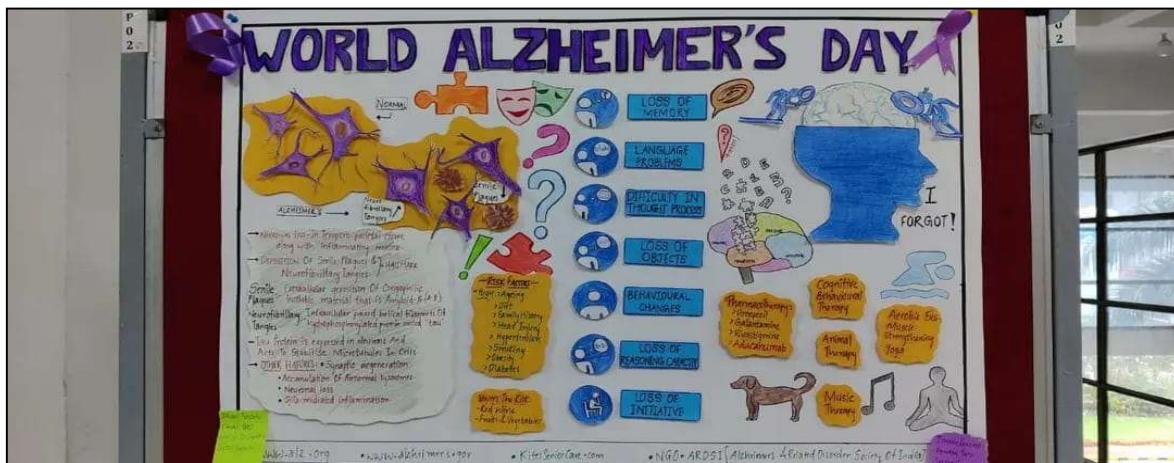 P
02
02
WORLD ALZHEIMER'S DAY
NORMAL
Senile
Plaques
ALZHEIMER'S
Neuro
fibrillary
Tangles
→ Neuronal loss in Temporo-parietal
along with Inflammatory
→ Deposition Of Senile Plaques &
Neurofibrillary Tangles
HALLMARK
Senile
Plaques
Extracellular deposition Of Congophilic
Insoluble material that is Amyloid-β
Neurofibrillary
Tangles
Intracellular paired helical filaments Of
hyperphosphorylated protein "tau"
→ Tau Protein is expressed in Neurons And
Acts To Stabilise Microtubules In Cells
→ OTHER FEATURES: • Synaptic degeneration
• Accumulation Of Abnormal Lysosomes
• Neuronal loss
• Glia-mediated inflammation
RISK FACTORS
> Ageing
> Diet
> Family History
> Head Injury
> Hypertension
> Smoking
> Obesity
> Diabetes
Lowers The Risk
- Red Wine
- Fruits & Vegetables
LOSS OF
MEMORY
LANGUAGE
PROBLEMS
DIFFICULTY IN
THOUGHT PROCESS
LOSS OF
OBJECTS
BEHAVIOURAL
CHANGES
LOSS OF
REASONING CAPACITY
LOSS OF
INITIATIVE
I
FORGOT!
Pharmacotherapy:
> Donepezil
> Galantamine
> Rivastigmine
> Aducanumab
Cognitive
Behavioural
Therapy
Animal
Therapy
Music
Therapy
Aerobic Ex:
Muscle
Strengthening
Yoga
www.alz.org
• www.alzheimers.gov
• KitesSeniorCare.com
• NGO: ARDSI [Alzheimers & Related Disorder Society Of India]